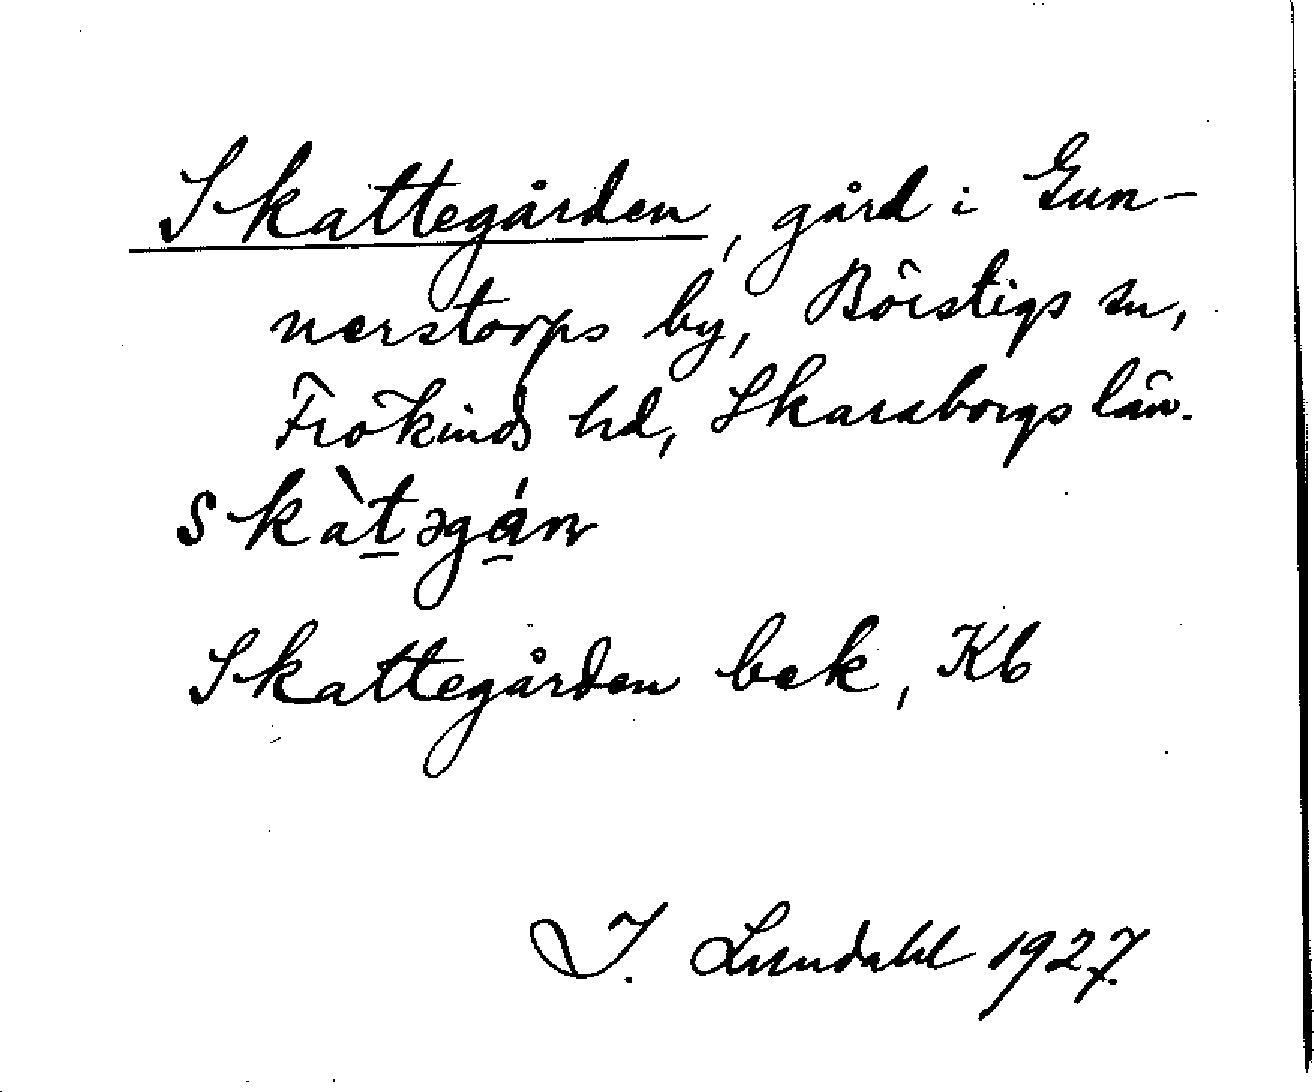 Skattegården, gård i Gun-
nerstorps by, Börstigs sn,
Frökinds hd, Skaraborgs län.
skàt̲əgá̲ɳ
Skattegården bek, Kb
I. Lundahl 1927.